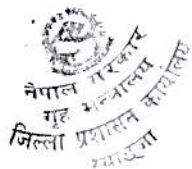 नेपाल सरकार
गृह मन्त्रालय
जिल्ला प्रशासन कार्यालय
म्याग्दी